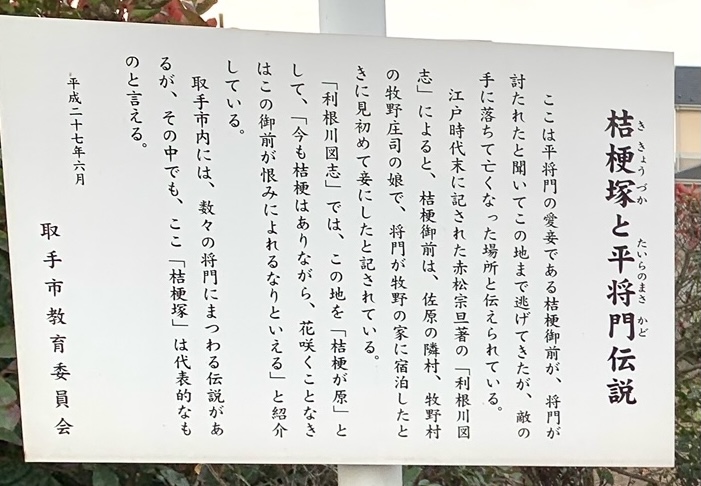 桔梗塚と平将門伝説
ききょうづか たいらのまさかど
ここは平将門の愛妾である桔梗御前が、将門が
討たれたと聞いてこの地まで逃げてきたが、敵の
手に落ちて亡くなった場所と伝えられている。
江戸時代末に記された赤松宗旦著の「利根川図
志」によると、桔梗御前は、佐原の隣村、牧野村
の牧野庄司の娘で、将門が牧野の家に宿泊したと
きに見初めて妾にしたと記されている。
「利根川図志」では、この地を「桔梗が原」と
して、「今も桔梗はありながら、花咲くことなき
はこの御前が恨みによれるなりといえる」と紹介
している。
取手市内には、数々の将門にまつわる伝説があ
るが、その中でも、ここ「桔梗塚」は代表的なも
のと言える。
平成二十七年六月
取手市教育委員会